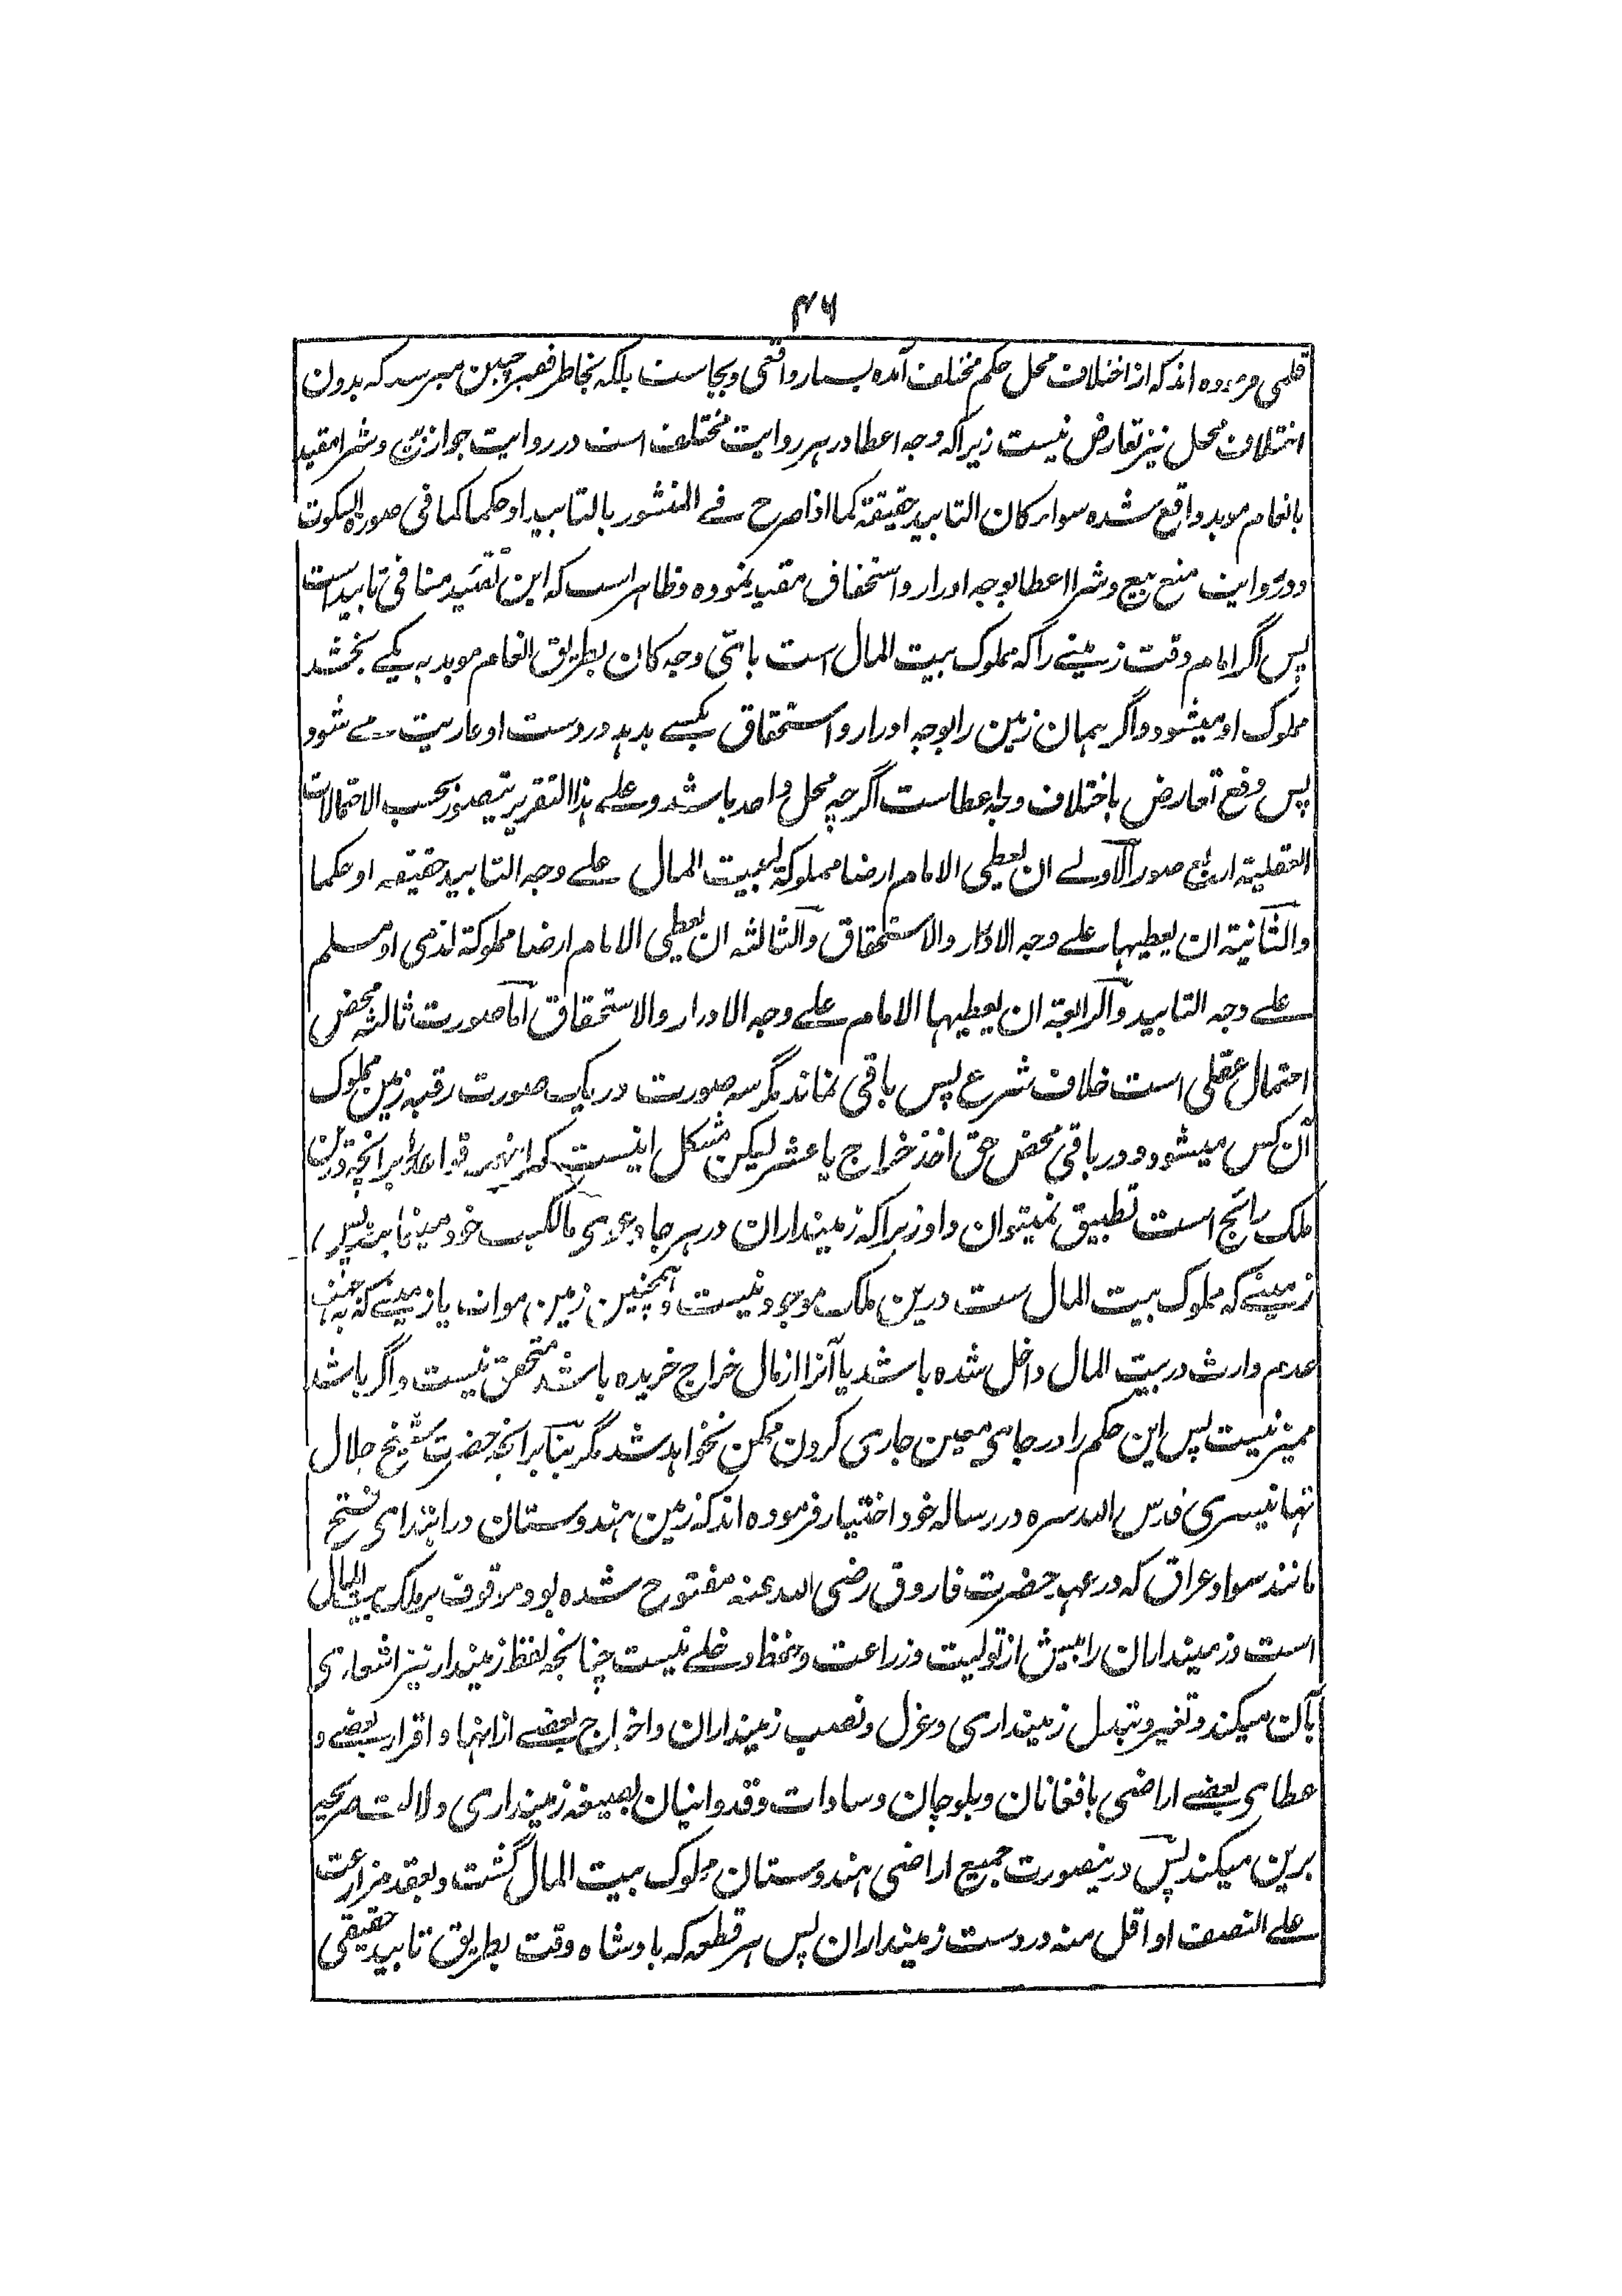 ۴۶
قلمی فرموده اند که از اختلاف محل حکم مختلف آمده بسیار واقعی و بجاست بلکه بخاطر فقیر چنین میرسد که بدون
اختلاف محل نیز تعارض نیست زیراکه وجه اعطا در هر روایت مختلف است در روایت جواز بیع و شرا مقید
بانعام موبد واقع شده سوار کان التابید حقیقة کما اذا صرح فے المنشور بالتابید او حکما کما فی صورة السکوت
و در روایت منع بیع و شرا اعطا بوجه ادرار و استحقاق مقید نموده و ظاهر است که این تقئید منافی تابیدست
پس اگر امام وقت زمینے را که مملوک بیت المال است باتی وجه کان بطریق انعام موبد به یکے بخشد
مملوک او میشود و اگر همان زمین را بوجه ادرار و استحقاق بکسے بدهد در دست او عاریت مے شود
پس دفع تعارض باختلاف وجه اعطاست اگرچه محل واحد باشد و علے هذا التقریر یتصور بحسب الاحتمالات
العقلیة اربع صور الاولے ان یعطی الامام ارضا مملوکة لبیت المال علے وجه التابید حقیقه او حکما
والثانیة ان یعطیها علے وجه الادرار والاستحقاق والثالثه ان یعطی الامام ارضا مملوکة لذمی او مسلم
علے وجه التابید والرابعة ان یعطیها الامام علے وجه الادرار والاستحقاق اما صورت ثالثه محض
احتمال عقلی است خلاف شرع پس باقی نماند مگر سه صورت در یک صورت رقبه زمین مملوک
آن کس میشود و در باقی محض حق اخذ خراج یا عشر لیکن مشکل اینست که اینهمه قواعد را بر آنچه درین
ملک رائج است تطبیق نمیتوان داد زیراکه زمینداران در هر جا دعوی مالکیت خود مینمایند پس
زمینے که مملوک بیت المال ست درین ملک موجود نیست و همچنین زمین موات یا زمینے که بجهت
عدم وارث در بیت المال داخل شده باشد یا آنرا از مال خراج خریده باشد متحقق نیست و اگر باشد
ممیز نیست پس این حکم را در جای معین جاری کردن ممکن نخواهد شد مگر بنا بر آنچه حضرت شیخ جلال
تهانیسری قدس الله سره در رساله خود اختیار فرموده اند که زمین هندوستان در ابتدای فتح
مانند سواد عراق که در عهد حضرت فاروق رضی الله عنه مفتوح شده بود موقوف بر ملک بیت المال
است و زمینداران را بیش از تولیت و زراعت و حفظ دخلے نیست چنانچه لفظ زمیندار نیز اشعاری
بآن میکند و تغیر و تبدل زمینداری و عزل و نصب زمینداران و اخراج بعضے ازانها و اقرار بعضے و
عطای بعضے اراضی بافغانان و بلوچان و سادات و قدوائیان بصیغه زمینداری دلالت صریح
برین میکند پس درینصورت جمیع اراضی هندوستان مملوک بیت المال گشت و بعقد مزارعت
علے النصف او اقل منه در دست زمینداران پس هر قطعه که بادشاه وقت بطریق تابید حقیقی